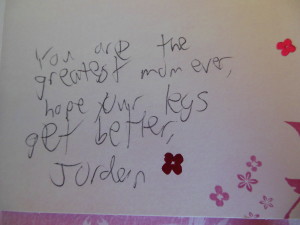 You are the
greatest mom ever,
hope your legs
get better,
Jorden